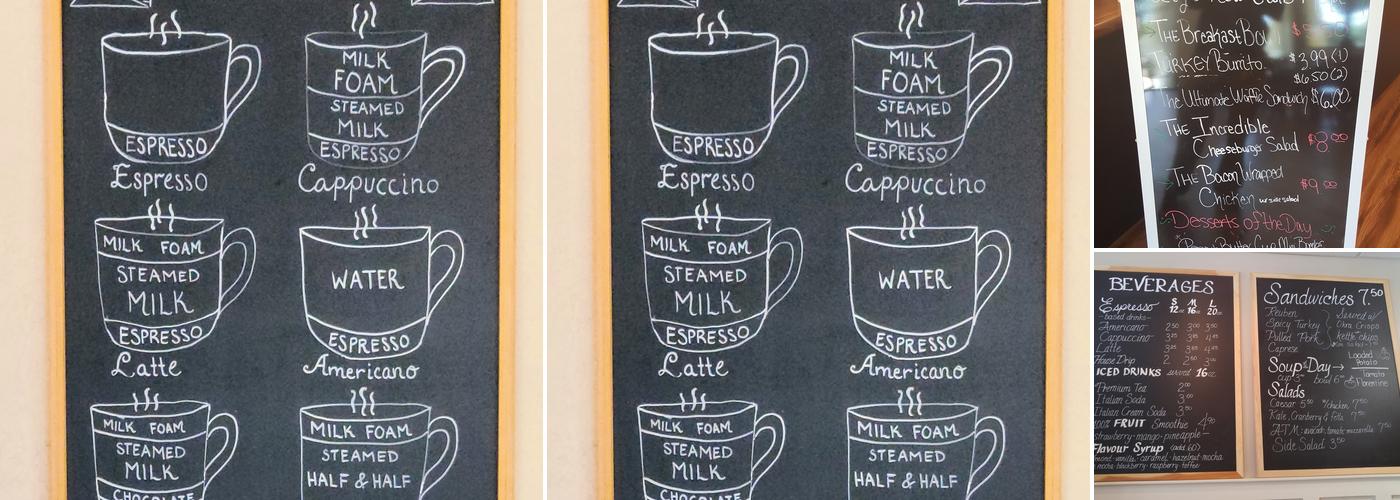 ESPRESSO
Espresso
MILK
FOAM
STEAMED
MILK
ESPRESSO
Cappuccino
MILK FOAM
STEAMED
MILK
ESPRESSO
Latte
WATER
ESPRESSO
Americano
MILK FOAM
STEAMED
MILK
CHOCOLATE
MILK FOAM
STEAMED
HALF & HALF
ESPRESSO
Espresso
MILK
FOAM
STEAMED
MILK
ESPRESSO
Cappuccino
MILK FOAM
STEAMED
MILK
ESPRESSO
Latte
WATER
ESPRESSO
Americano
MILK FOAM
STEAMED
MILK
CHOCOLATE
MILK FOAM
STEAMED
HALF & HALF
THE Breakfast Bowl
TURKEY Burrito $3.99 (1)
$6.50 (2)
The Ultimate Waffle Sandwich $6.00
THE Incredible
Cheeseburger Salad $8.00
THE Bacon Wrapped
Chicken w/ side salad $9.00
Desserts of the Day
BEVERAGES
Espresso S M L
-based drinks- 12oz 16oz 20oz
Americano 2.50 3.00 3.50
Cappuccino
Latte
House Drip
ICED DRINKS served 16oz
Premium Tea 2.00
Italian Soda 3.00
Italian Cream Soda 3.50
100% FRUIT Smoothie 4.90
strawberry-mango-pineapple
Flavour Syrup (add .60)
vanilla-caramel-hazelnut-mocha
mocha-blackberry-raspberry-toffee
Sandwiches 7.50
Reuben Served w/
Spicy Turkey Okra Crisps
Pulled Pork kettle chips
Caprese
Loaded
Potato
Soup of Day →
cup bowl 6 Tomato
Florentine
Salads
Caesar 5.50 w/chicken 7.50
Kale, Cranberry & Feta 7.50
A.T.M. avocado, tomato, mozzarella 7.50
Side Salad 3.50